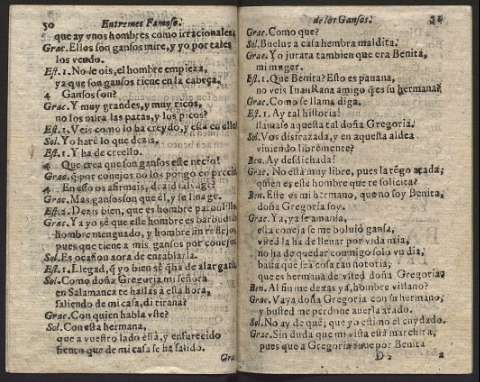 50 Entremes Famoso.
que ay vnos hombres como irracionales,
Grac. Ellos son gansos mire, y yo por tales
los vendo.
Est. 1. No le ois, el hombre empieza,
ya que son gansos tiene en la cabeça.
4 Gansos son?
Grac. Y muy grandes, y muy ricos,
no los mira las patas, y los picos?
Est. 1. Veis como lo ha creydo, y està en ello?
Sol. Yo harè lo que dezis,
Est. 1. Y ha de creello.
4 Que crea que son gansos este necio!
Grac. por conejos no los pongo en precio
4 En esso os afirmais,
Grac. Mas gansos son que èl, y su linage.
Est. 2. Dezis bien, que es hombre
Grac. Ya yo sè que este hombre es
hombre menguado, y hombre sin
pues que tiene a mis gansos por conejos
Sol. Es ocasion aora de entablarla.
Est. 1. Llegad, q̃ yo bien sè q̃ ha de alargarla
Sol. Como doña Gregoria mi señora
en Salamanca te hallas a esta hora,
saliendo de mi casa, di tirana?
Grac. Con quien habla vste?
Sol. Con esta hermana,
que a vuestro lado està, y enfurecido
tiene que de mi casa se ha salido.
Gra
de los Gansos.
Grac. Como que?
Sol. Buelue a casa hembra maldita.
Grac. Yo jurara tambien que era Benita,
mi muger.
Est. 1. Què Benita? Esto es
no veis Iuan Rana amigo q̃ es su hermana?
Grac. Como se llama diga.
Est. 1. Ay tal historia!
llamase aquesta tal doña Gregoria.
Sol. Vos disfrazada, y en aquesta aldea
viniendo libremente?
Ben. Ay desdichada!
Grac. No està muy libre, pues la tẽgo atada;
quien es este hombre que te solicita?
Ben. Este es mi hermano, que no soy Benita,
doña Gregoria soy.
Grac. Ya, ya se
esta coneja se me boluiò gansa,
vstèd la ha de lleuar por vida mia,
no ha de quedar conmigo solo vn dia,
basta que sea cosa tan notoria,
que es hermana de vsted doña Gregoria?
Ben. Al fin me dexas ya, hombre villano?
Grac. Vaya doña Gregoria con su hermano,
y busted me perdone auerla atado.
Sol. No ay de què, que yo estimo el cuydado.
Grac. Sin duda que mi vista està
pues que a Gregoria tuue por Benita
D 2